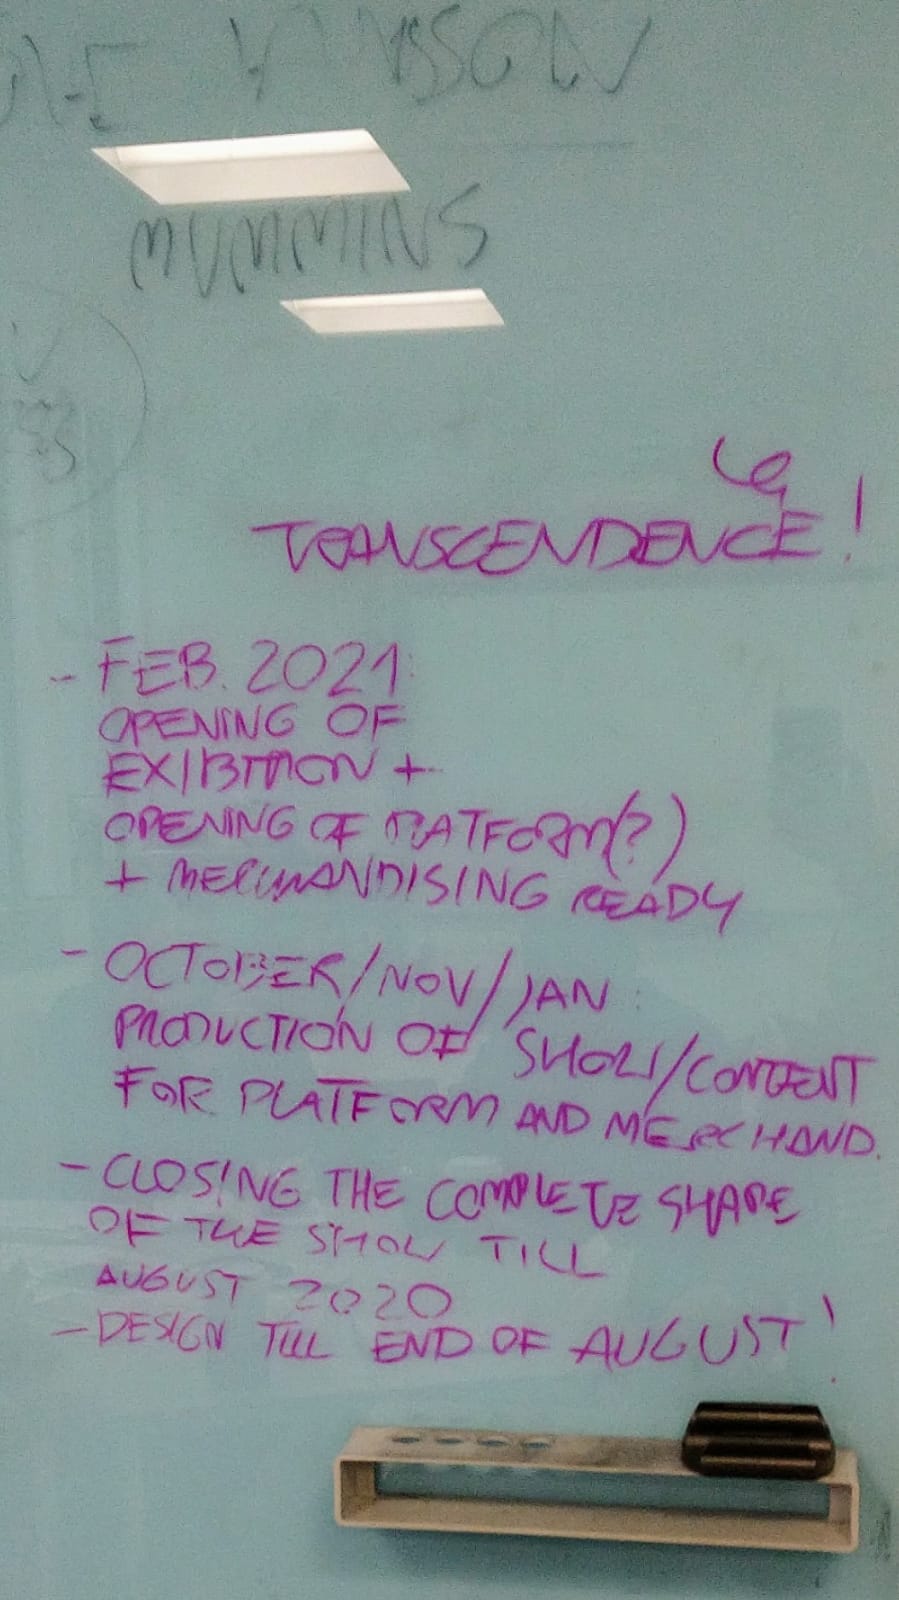 MUMMINS
TRANSCENDENCE!
- FEB. 2021:
OPENING OF
EXIBITION +
OPENING OF PLATFORM(?)
+ MERCHANDISING READY
- OCTOBER/NOV/JAN:
PRODUCTION OF SHOW/CONTENT
FOR PLATFORM AND MERCHAND.
- CLOSING THE COMPLETE SHAPE
OF THE SHOW TILL
AUGUST 2020
- DESIGN TILL END OF AUGUST!